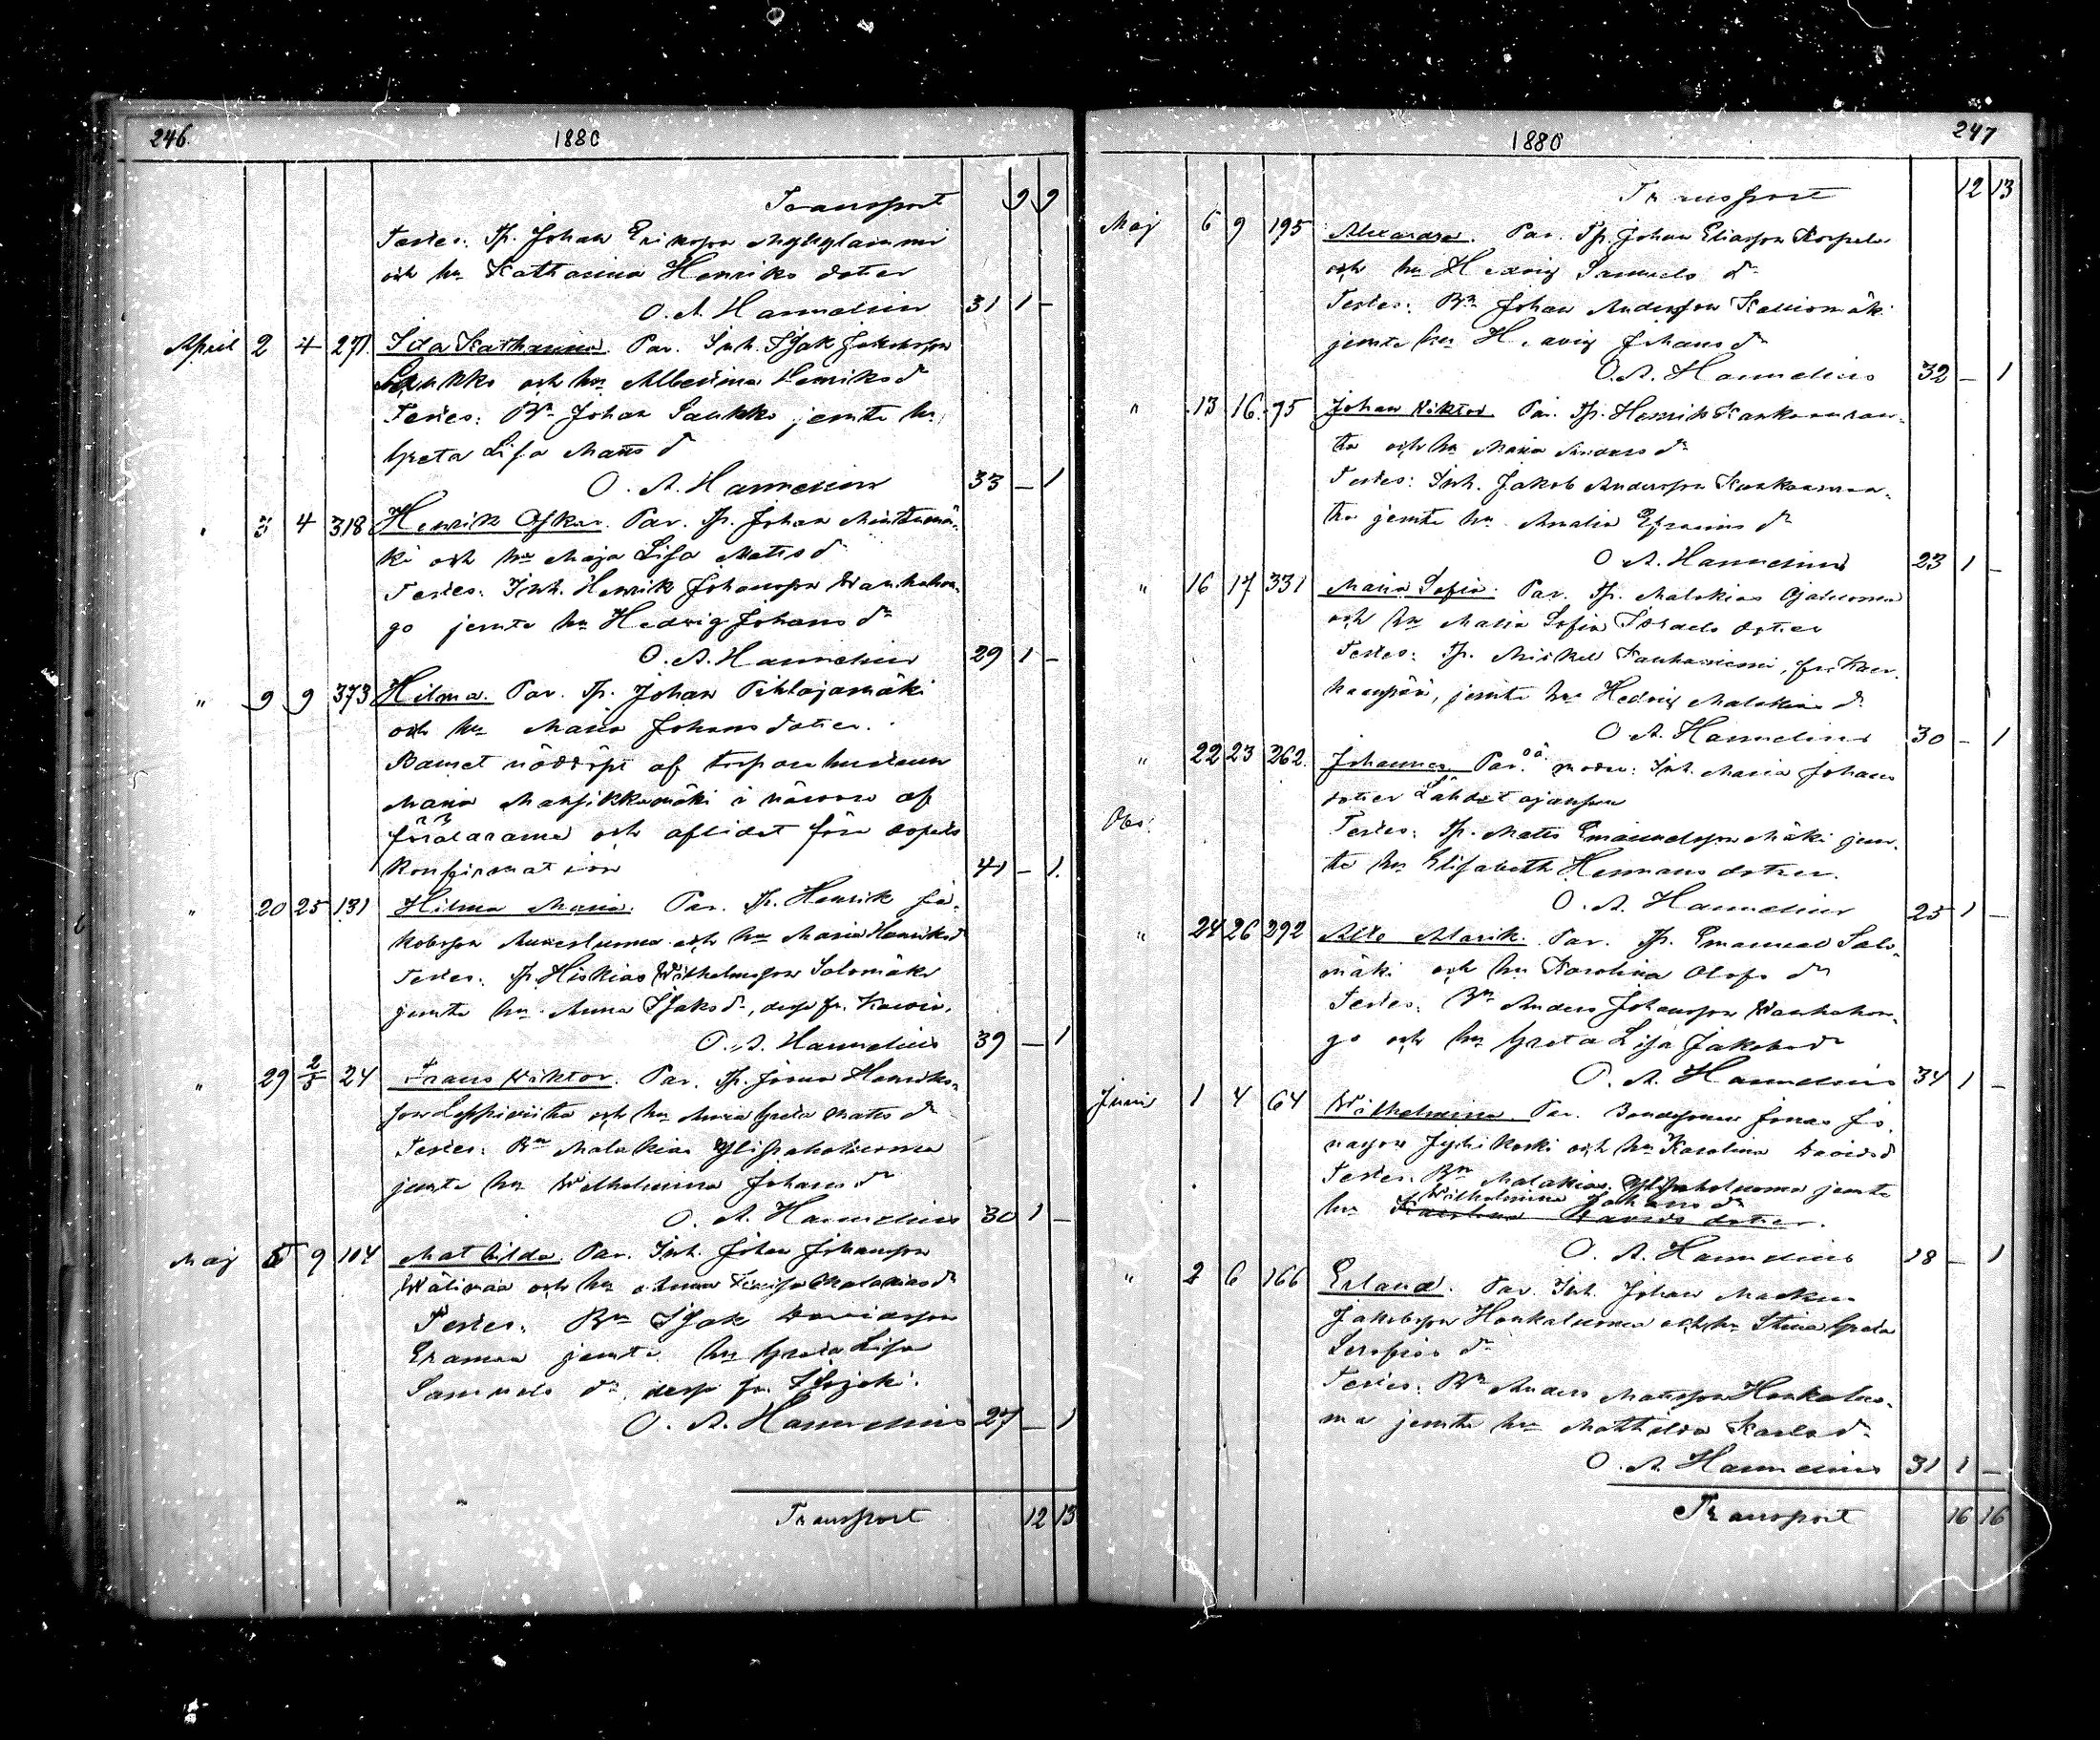 246.
1880
Transport 9 9
Testes: Tp. Johan Eriksson Myllylammi
och hu Katharina Henriks doter
O. A. Hannelius 31 1 –
April 2 4 271. Ida Katharina. Par. Inh. Isak Jakobsson
Saukko och hu Albertina Henriksd
Testes: Bn Johan Saukko jemte hu
Greta Lisa Matts d
O. A. Hannelius 33 – 1
" 3 4 318 Henrik Oskar. Par. Tp. Johan Mintumä-
ki och hu Maja Lisa Mattsd
Testes: Inh. Henrik Johansson Wanhahon-
go jemte hu Hedvig Johans dr
O. A. Hannelius 29 1 –
" 9 9 373 Hilma. Par. Tp. Johan Pihlajamäki
och hu Maria Johansdoter.
Barnet nöddöpt af torparehustrun
Maria Mansikkamäki i närvaro af
föräldrarna och aflidet före dopets
konfirmation 41 – 1.
" 20 25 131 Hilma Maria. Par. Tp. Henrik Ja-
kobsson Annerluoma och hu Maria Henriksd
Testes: Tp. Hiskias Wilhelmsson Salomäki
jemte hu Anna Isaksd,
O. A. Hannelius 39 – 1
" 29 2/5 24 Frans Viktor. Par. Tp. Jonas Henriks-
son Leppiviita och hu Anna Greta Matts dr
Testes: Bn Malakias Ylipaholuoma
jemte hu Wilhelmina Johans dr
O. A. Hannelius 30 1 –
Maj 5 9 104 Mathilda. Par. Inh. Johan Johansson
Wälimaa och hu Anna Kaisa Malakiasdr
Testes: Bn Isak Davidsson
jemte hu Greta Lisa
Samuels dr,
O. A. Hannelius 27 – 1
Transport 12 13
247
1880
Transport 12 13
Maj 6 9 195 Alexandra. Par. Tp. Johan Eliasson Korpela
och hu Hedvig Samuels dr
Testes: Bn Johan Andersson Kalliomäki
jemte hu Hedvig Johans dr
O. A. Hannelius 32 – 1
" 13 16. 75 Johan Viktor. Par. Tp. Henrik Kankaanran-
ta och hu Maria Anders dr
Testes: Inh. Jakob Andersson Kankaanran-
ta jemte hu Amalia Efraims dr
O A. Hannelius 23 1 –
" 16 17 331 Maria Sofia. Par. Tp. Malakias Ojaluoma
och hu Maria Sofia Israels doter
Testes: Tp. Mickel Kauhaniemi, fr.
jemte hu Hedvig Malakias d
O A. Hannelius 30 – 1
" 22 23 262. Johannes. Par. oä moder: Inh. Maria Johans
doter Lähdetojansuu
Obs. Testes: Tp. Matts Emanuelsson Mäki jem-
te hu Elisabeth Hermans doter.
O. A. Hannelius 25 1 –
" 24 26 292 Atte Alarik. Par. Tp. Emanuel Salo-
mäki och hu Karolina Olofs dr
Testes: Bn Anders Johansson Wanhahon-
go och hu Greta Lisa Jakobsdr
O. A. Hannelius 34 1 –
Juni 1 4 64 Wilhelmina. Par. Bondesonen Jonas Jo-
nasson Jyrhikoski och hu Karolina Davidsd
Testes: Bn Malakias Ylipaholuoma jemte
Wilhelmina Johans dr
hu Karolina Davids doter.
O. A. Hannelius 18 – 1
" 2 6 166 Erland. Par. Inh. Johan Markus
Jakobsson Honkaluoma och hu Stina Greta
Serafias dr
Testes: Bn Anders Mattsson Honkaluo-
ma jemte hu Mathilda Karls dr
O. A. Hannelius 31 1 –
Transport 16 16